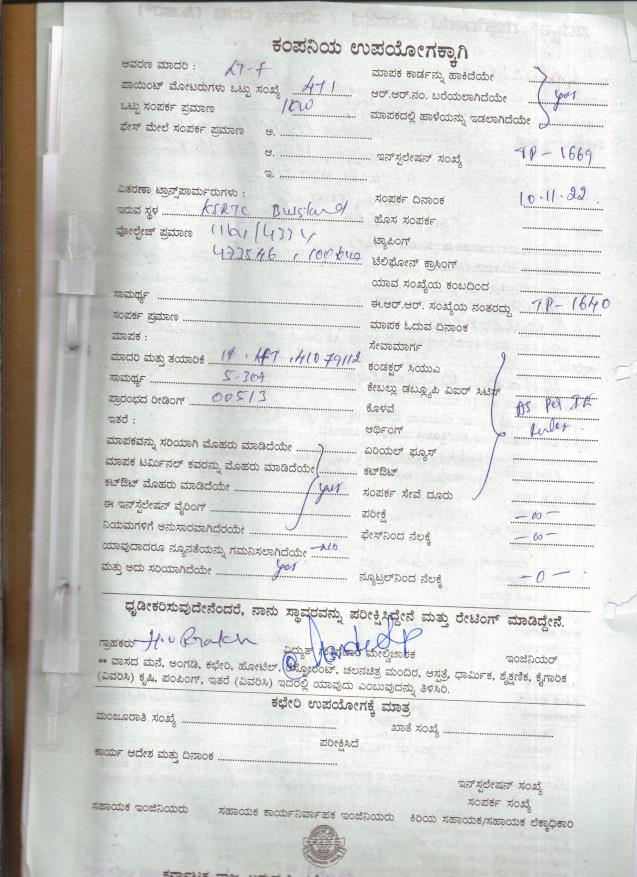 ಕಂಪನಿಯ ಉಪಯೋಗಕ್ಕಾಗಿ
ಆವರಣ ಮಾದರಿ : LT-F
ಮಾಪಕ ಕಾರ್ಡನ್ನು ಹಾಕಿದೆಯೇ
ಪಾಯಿಂಟ್ ಮೋಟರುಗಳು ಒಟ್ಟು ಸಂಖ್ಯೆ 471
ಆರ್.ಆರ್.ನಂ. ಬರೆಯಲಾಗಿದೆಯೇ yes
ಒಟ್ಟು ಸಂಪರ್ಕ ಪ್ರಮಾಣ
ಮಾಪಕದಲ್ಲಿ ಹಾಳೆಯನ್ನು ಇಡಲಾಗಿದೆಯೇ
ಫೇಸ್ ಮೇಲೆ ಸಂಪರ್ಕ ಪ್ರಮಾಣ ಅ.
ಆ. ಇನ್‌ಸ್ಟಲೇಷನ್ ಸಂಖ್ಯೆ TP-1669
ಇ.
ವಿತರಣಾ ಟ್ರಾನ್ಸ್‌ಫಾರ್ಮರುಗಳು :
ಸಂಪರ್ಕ ದಿನಾಂಕ 10.11.22
ಇರುವ ಸ್ಥಳ KSRTC
ಹೊಸ ಸಂಪರ್ಕ
ವೋಲ್ಟೇಜ್ ಪ್ರಮಾಣ
ಟ್ಯಾಪಿಂಗ್
ಟೆಲಿಫೋನ್ ಕ್ರಾಸಿಂಗ್
ಯಾವ ಸಂಖ್ಯೆಯ ಕಂಬದಿಂದ
ಸಾಮರ್ಥ್ಯ
ಈ.ಆರ್.ಆರ್. ಸಂಖ್ಯೆಯ ನಂತರದ್ದು TP-1640
ಸಂಪರ್ಕ ಪ್ರಮಾಣ
ಮಾಪಕ ಓದುವ ದಿನಾಂಕ
ಮಾಪಕ :
ಸೇವಾಮಾರ್ಗ
ಮಾದರಿ ಮತ್ತು ತಯಾರಿಕೆ 41079112
ಕಂಡಕ್ಟರ್ ಸಿಯುಎ
ಸಾಮರ್ಥ್ಯ 5-30A
ಕೇಬಲ್ಲು ಡಬ್ಲ್ಯೂಪಿ ವಿಐರ್ ಸಿಟಿಸ್
ಪ್ರಾರಂಭದ ರೀಡಿಂಗ್ 00513
ಕೊಳವೆ As Per IE
ಇತರೆ :
ಆರ್ಥಿಂಗ್ Rules
ಮಾಪಕವನ್ನು ಸರಿಯಾಗಿ ಮೊಹರು ಮಾಡಿದೆಯೇ
ಏರಿಯಲ್ ಫ್ಯೂಸ್
ಮಾಪಕ ಟರ್ಮಿನಲ್ ಕವರನ್ನು ಮೊಹರು ಮಾಡಿದೆಯೇ
ಕಟ್‌ಔಟ್
ಕಟ್‌ಔಟ್ ಮೊಹರು ಮಾಡಿದೆಯೇ yes
ಸಂಪರ್ಕ ಸೇವೆ ದೂರು
ಈ ಇನ್‌ಸ್ಟೆಲೇಷನ್ ವೈರಿಂಗ್
ಪರೀಕ್ಷೆ -∞-
ನಿಯಮಗಳಿಗೆ ಅನುಸಾರವಾಗಿದೆರಯೇ
ಫೇಸ್‌ನಿಂದ ನೆಲಕ್ಕೆ -∞-
ಯಾವುದಾದರೂ ನ್ಯೂನತೆಯನ್ನು ಗಮನಿಸಲಾಗಿದೆಯೇ -NO
ಮತ್ತು ಅದು ಸರಿಯಾಗಿದೆಯೇ yes
ನ್ಯೂಟ್ರಲ್‌ನಿಂದ ನೆಲಕ್ಕೆ -0-
ಧೃಡೀಕರಿಸುವುದೇನೆಂದರೆ, ನಾನು ಸ್ಥಾವರವನ್ನು ಪರೀಕ್ಷಿಸಿದ್ದೇನೆ ಮತ್ತು ರೇಟಿಂಗ್ ಮಾಡಿದ್ದೇನೆ.
ಗ್ರಾಹಕರು
ವಿದ್ಯುತ್ ಮೇಲ್ವಿಚಾರಕ
ಇಂಜಿನಿಯರ್
** ವಾಸದ ಮನೆ, ಅಂಗಡಿ, ಕಛೇರಿ, ಹೋಟೆಲ್, ರೆಸ್ಟೋರೆಂಟ್, ಚಲನಚಿತ್ರ ಮಂದಿರ, ಆಸ್ಪತ್ರೆ, ಧಾರ್ಮಿಕ, ಶೈಕ್ಷಣಿಕ, ಕೈಗಾರಿಕ
(ವಿವರಿಸಿ) ಕೃಷಿ, ಪಂಪಿಂಗ್, ಇತರೆ (ವಿವರಿಸಿ) ಇದರಲ್ಲಿ ಯಾವುದು ಎಂಬುವುದನ್ನು ತಿಳಿಸಿರಿ.
ಕಛೇರಿ ಉಪಯೋಗಕ್ಕೆ ಮಾತ್ರ
ಮಂಜೂರಾತಿ ಸಂಖ್ಯೆ
ಖಾತೆ ಸಂಖ್ಯೆ
ಪರೀಕ್ಷಿಸಿದೆ
ಕಾರ್ಯ ಆದೇಶ ಮತ್ತು ದಿನಾಂಕ
ಇನ್‌ಸ್ಟಲೇಷನ್ ಸಂಖ್ಯೆ
ಸಂಪರ್ಕ ಸಂಖ್ಯೆ
ಸಹಾಯಕ ಇಂಜಿನಿಯರು ಸಹಾಯಕ ಕಾರ್ಯನಿರ್ವಾಹಕ ಇಂಜಿನಿಯರು ಕಿರಿಯ ಸಹಾಯಕ/ಸಹಾಯಕ ಲೆಕ್ಕಾಧಿಕಾರಿ